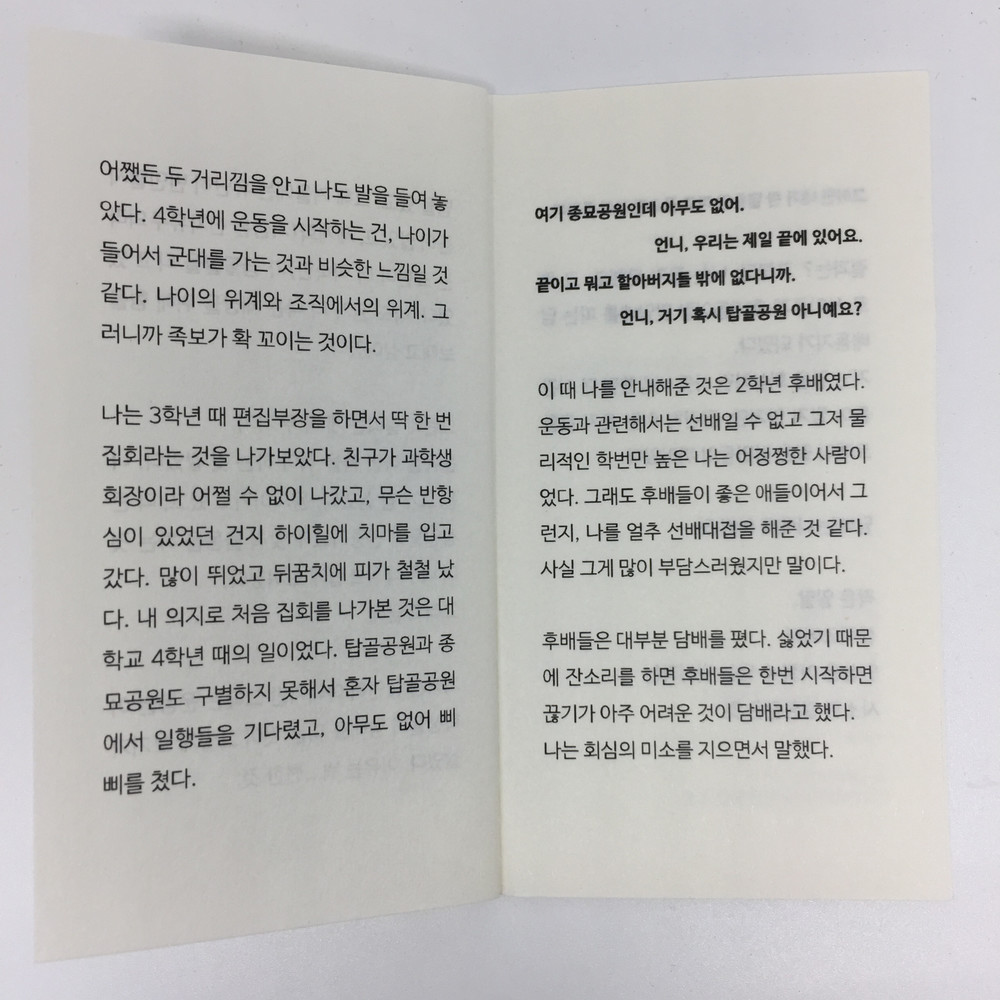 어쨌든 두 거리낌을 안고 나도 발을 들여 놓
았다. 4학년에 운동을 시작하는 건, 나이가
들어서 군대를 가는 것과 비슷한 느낌일 것
같다. 나이의 위계와 조직에서의 위계. 그
러니까 족보가 확 꼬이는 것이다.
나는 3학년 때 편집부장을 하면서 딱 한 번
집회라는 것을 나가보았다. 친구가 과학생
회장이라 어쩔 수 없이 나갔고, 무슨 반항
심이 있었던 건지 하이힐에 치마를 입고
갔다. 많이 뛰었고 뒤꿈치에 피가 철철 났
다. 내 의지로 처음 집회를 나가본 것은 대
학교 4학년 때의 일이었다. 탑골공원과 종
묘공원도 구별하지 못해서 혼자 탑골공원
에서 일행들을 기다렸고, 아무도 없어 삐
삐를 쳤다.
여기 종묘공원인데 아무도 없어.
언니, 우리는 제일 끝에 있어요.
끝이고 뭐고 할아버지들 밖에 없다니까.
언니, 거기 혹시 탑골공원 아니예요?
이 때 나를 안내해준 것은 2학년 후배였다.
운동과 관련해서는 선배일 수 없고 그저 물
리적인 학번만 높은 나는 어정쩡한 사람이
었다. 그래도 후배들이 좋은 애들이어서 그
런지, 나를 얼추 선배대접을 해준 것 같다.
사실 그게 많이 부담스러웠지만 말이다.
후배들은 대부분 담배를 폈다. 싫었기 때문
에 잔소리를 하면 후배들은 한번 시작하면
끊기가 아주 어려운 것이 담배라고 했다.
나는 회심의 미소를 지으면서 말했다.